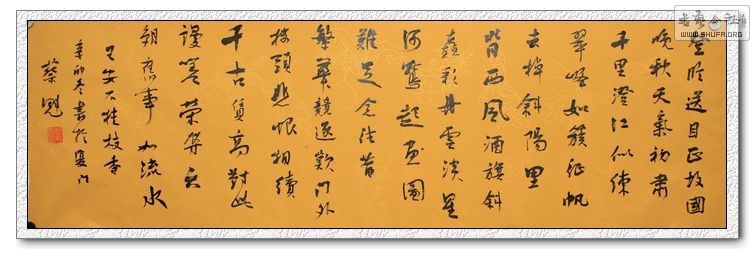 登临送目正故国
晚秋天气初肃
千里澄江似练
翠峰如簇征帆
去棹斜阳里
背西风酒旗斜
矗彩舟云淡星
河鹭起画图
难足念往昔
繁华竞逐叹门外
楼头悲恨相续
千古凭高对此
谩嗟荣辱六
朝旧事如流水
王安石桂枝香
辛卯冬书于厦门
蔡魁
WWW.SHUFA.ORG